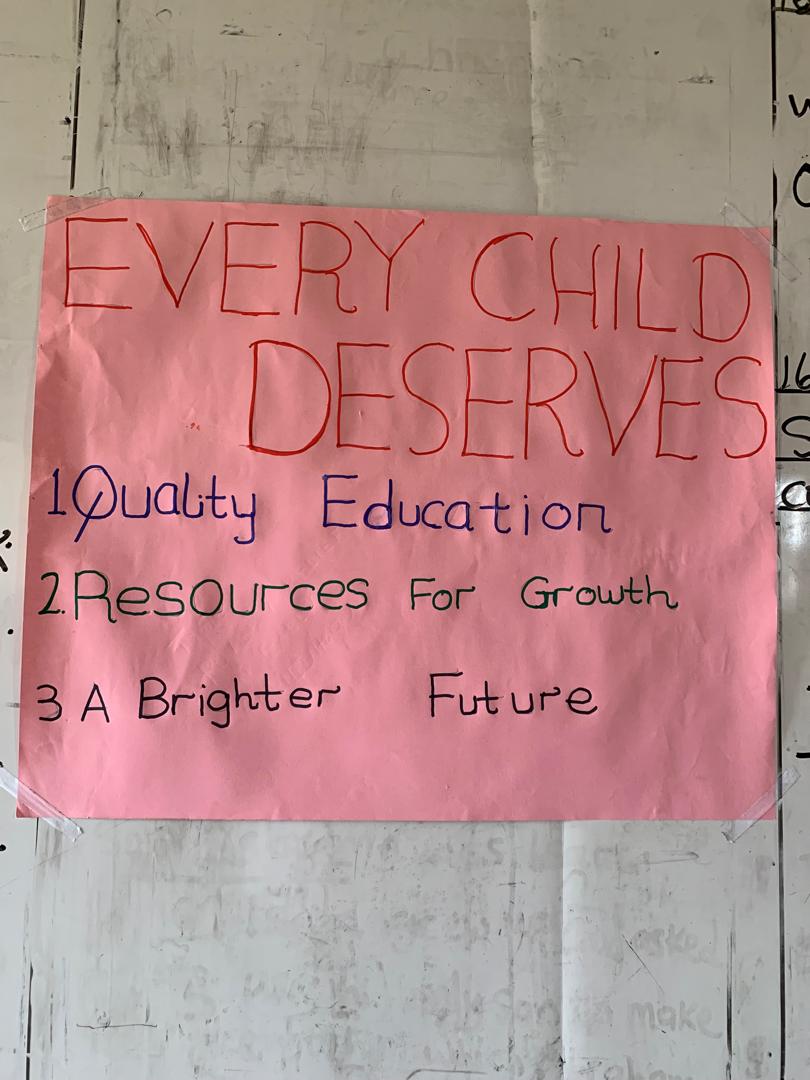 EVERY CHILD
DESERVES
1 Quality Education
2. Resources For Growth
3 A Brighter Future
16
make